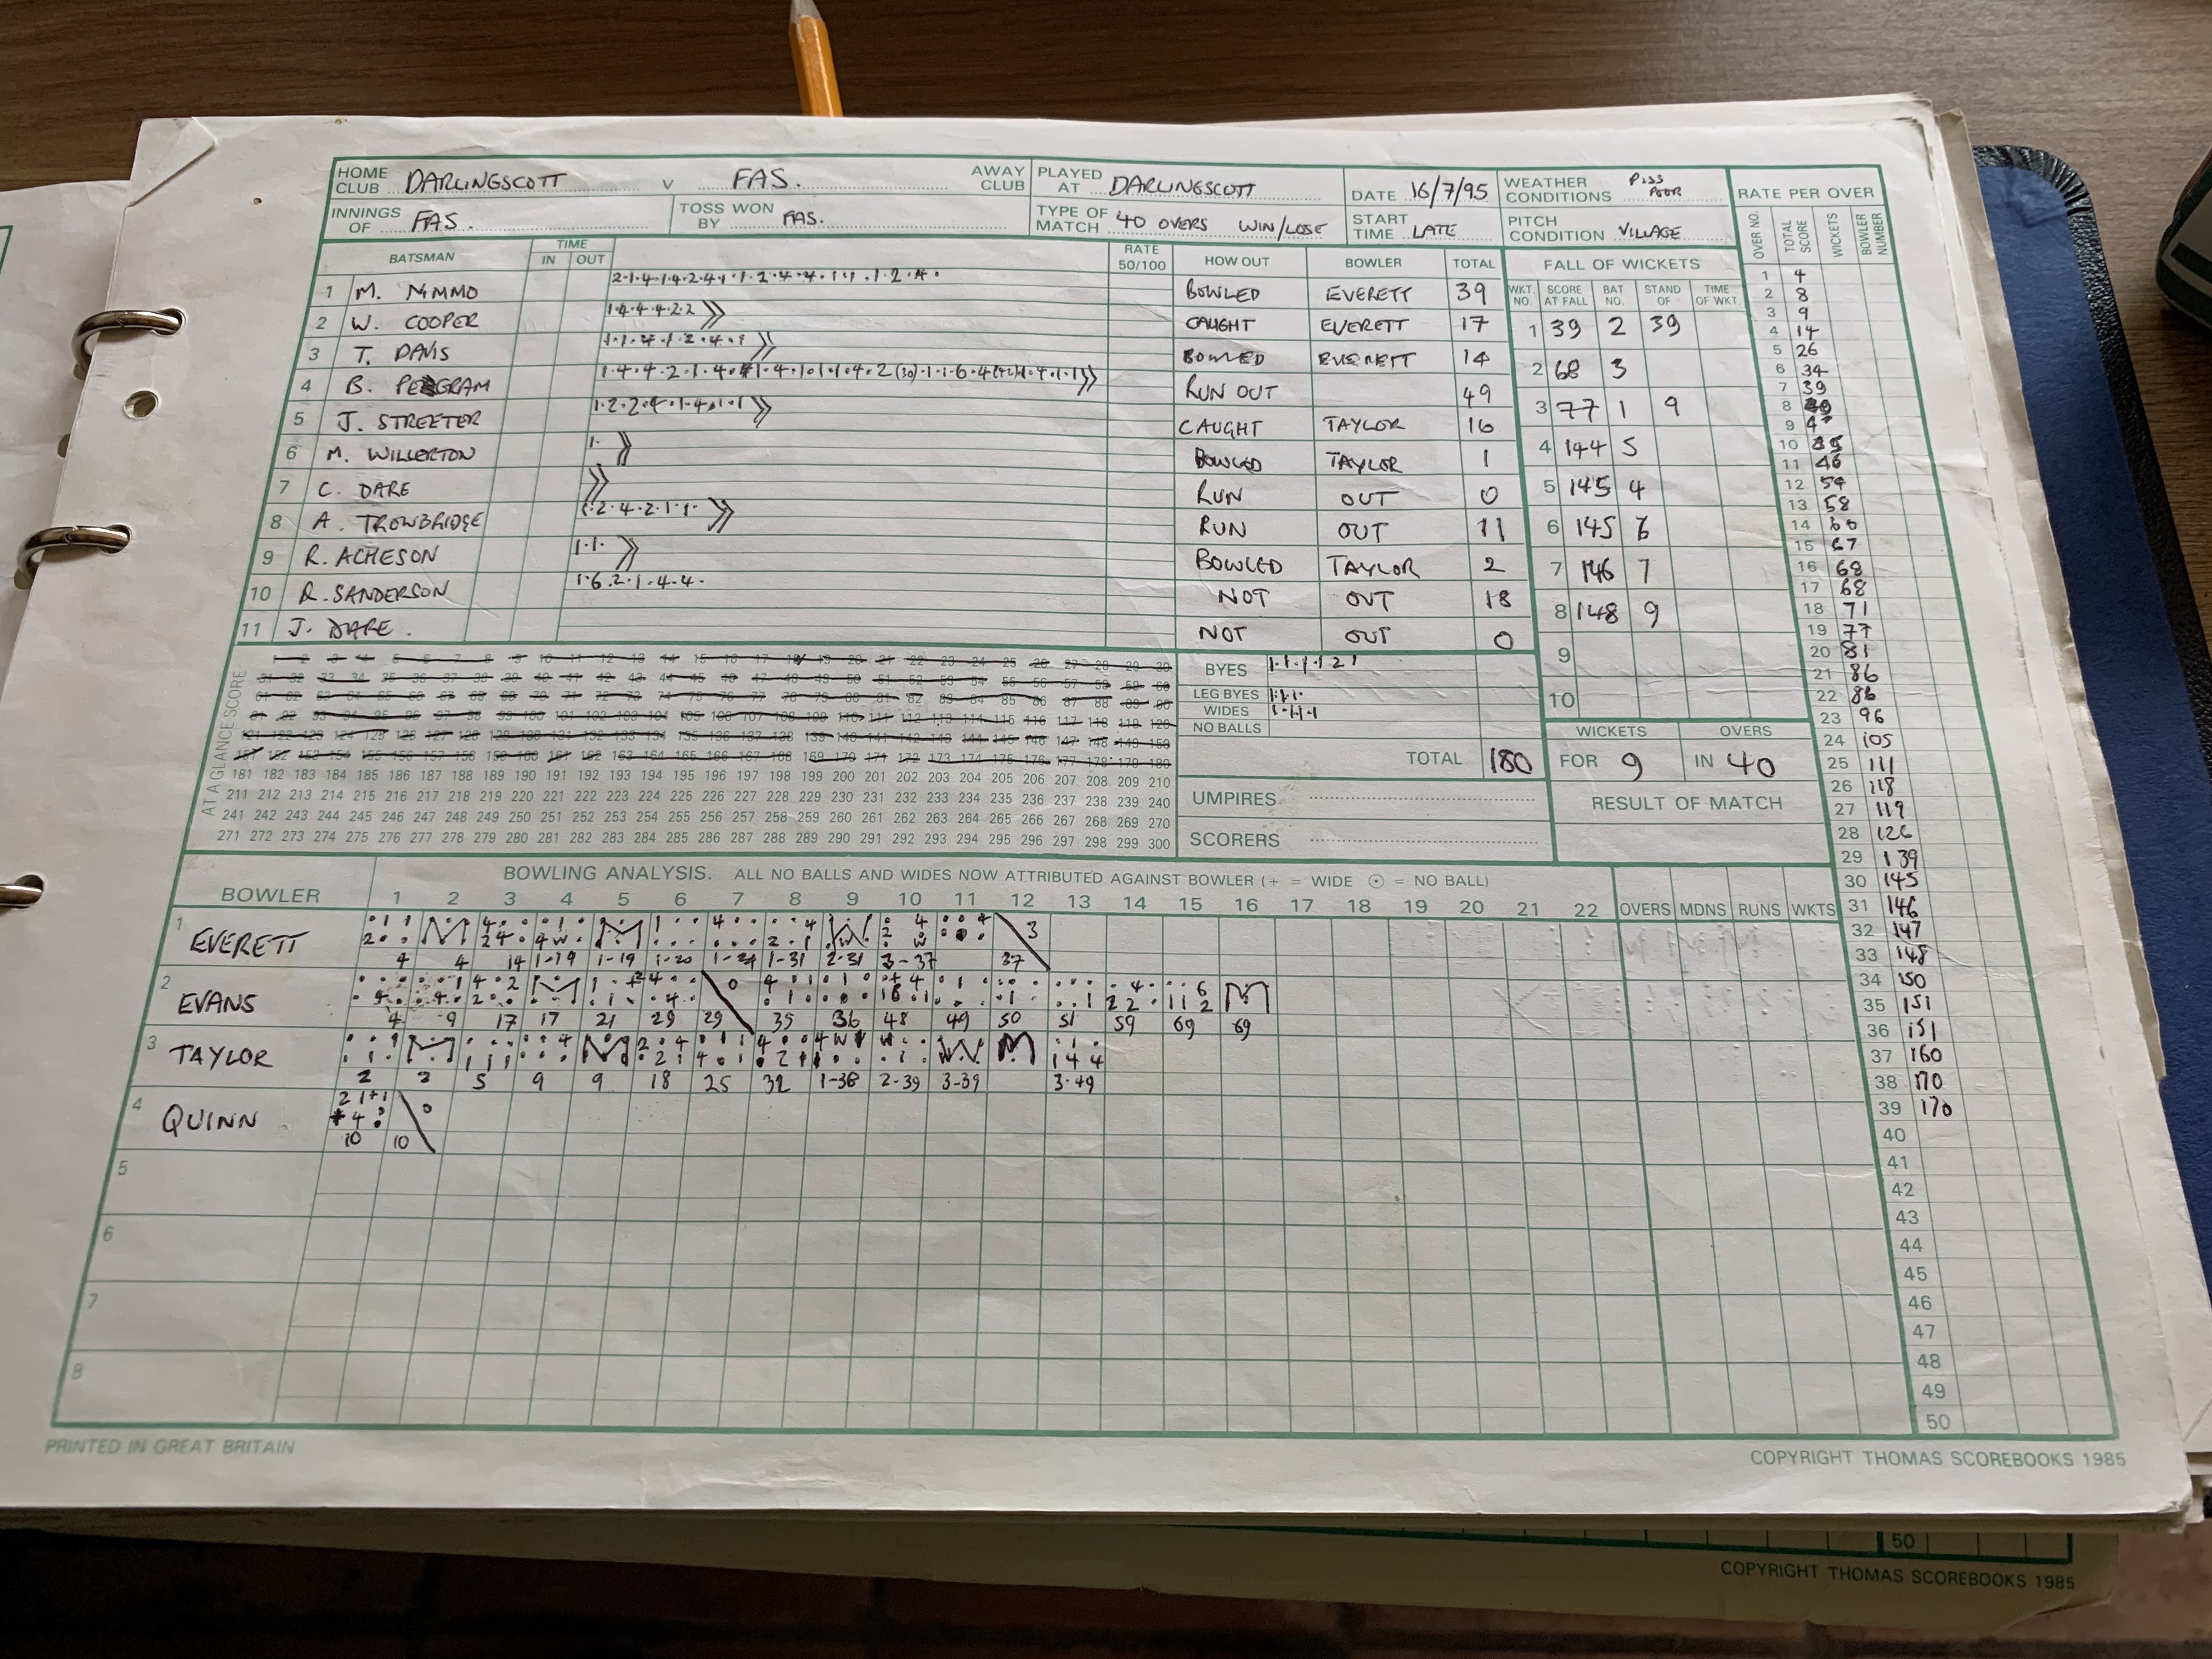 HOME CLUB DARLINGSCOTT V FAS. AWAY CLUB PLAYED AT DARLINGSCOTT DATE 16/7/95 WEATHER CONDITIONS PISS POOR RATE PER OVER
INNINGS OF FAS. TOSS WON BY FAS. TYPE OF MATCH 40 OVERS WIN/LOSE START TIME LATE PITCH CONDITION VILLAGE
OVER NO. TOTAL SCORE WICKETS BOWLER NUMBER
BATSMAN TIME IN OUT RATE 50/100 HOW OUT BOWLER TOTAL
1 M. NIMMO BOWLED EVERETT 39
2 W. COOPER 1.4.4.4.2.2 CAUGHT EVERETT 17
3 T. DAVIS BOWLED EVERETT 14
4 B. PEGRAM RUN OUT 49
5 J. STREETER 1.2.2.4.1.4.1.1 CAUGHT TAYLOR 16
6 M. WILLERTON 1. BOWLED TAYLOR 1
7 C. DARE RUN OUT 0
8 A. TROWBRIDGE 1.2.4.2.1.1. RUN OUT 11
9 R. ACHESON 1.1. BOWLED TAYLOR 2
10 R. SANDERSON 1.6.2.1.4.4. NOT OUT 18
11 J. DARE. NOT OUT 0
FALL OF WICKETS
WKT. NO. SCORE AT FALL BAT NO. STAND OF TIME OF WKT.
1 39 2 39
2 68 3
3 77 1 9
4 144 5
5 145 4
6 145 6
7 146 7
8 148 9
9
10
AT A GLANCE SCORE
1 2 3 4 5 6 7 8 9 10 11 12 13 14 15 16 17 18 19 20 21 22 23 24 25 26 27 28 29 30
31 32 33 34 35 36 37 38 39 40 41 42 43 44 45 46 47 48 49 50 51 52 53 54 55 56 57 58 59 60
61 62 63 64 65 66 67 68 69 70 71 72 73 74 75 76 77 78 79 80 81 82 83 84 85 86 87 88 89 90
91 92 93 94 95 96 97 98 99 100 101 102 103 104 105 106 107 108 109 110 111 112 113 114 115 116 117 118 119 120
121 122 123 124 125 126 127 128 129 130 131 132 133 134 135 136 137 138 139 140 141 142 143 144 145 146 147 148 149 150
151 152 153 154 155 156 157 158 159 160 161 162 163 164 165 166 167 168 169 170 171 172 173 174 175 176 177 178 179 180
181 182 183 184 185 186 187 188 189 190 191 192 193 194 195 196 197 198 199 200 201 202 203 204 205 206 207 208 209 210
211 212 213 214 215 216 217 218 219 220 221 222 223 224 225 226 227 228 229 230 231 232 233 234 235 236 237 238 239 240
241 242 243 244 245 246 247 248 249 250 251 252 253 254 255 256 257 258 259 260 261 262 263 264 265 266 267 268 269 270
271 272 273 274 275 276 277 278 279 280 281 282 283 284 285 286 287 288 289 290 291 292 293 294 295 296 297 298 299 300
BYES 1.1.1.1.2 1
LEG BYES 1.1.1.
WIDES 1.1.1.1
NO BALLS
TOTAL 180
WICKETS OVERS
FOR 9 IN 40
UMPIRES
SCORERS
RESULT OF MATCH
1 4
2 8
3 9
4 14
5 26
6 34
7 39
8
9
10 45
11 46
12 54
13 58
14 60
15 67
16 68
17 68
18 71
19 77
20 81
21 86
22 86
23 96
24 105
25 111
26 118
27 119
28 126
29 139
30 145
31 146
32 147
33 148
34 150
35 151
36 151
37 160
38 170
39 170
40
41
42
43
44
45
46
47
48
49
50
BOWLING ANALYSIS. ALL NO BALLS AND WIDES NOW ATTRIBUTED AGAINST BOWLER (+ = WIDE ⊙ = NO BALL)
BOWLER 1 2 3 4 5 6 7 8 9 10 11 12 13 14 15 16 17 18 19 20 21 22 OVERS MDNS RUNS WKTS
1 EVERETT 4 4 14 1-19 1-19 1-20 1-24 1-31 2-31 3-37 37 3
2 EVANS 4 9 17 17 21 29 29 35 36 48 49 50 51 59 69 69
3 TAYLOR 2 2 5 9 9 18 25 32 1-38 2-39 3-39 3-49
4 QUINN 10 10
5
6
7
8
PRINTED IN GREAT BRITAIN
COPYRIGHT THOMAS SCOREBOOKS 1985
50
COPYRIGHT THOMAS SCOREBOOKS 1985